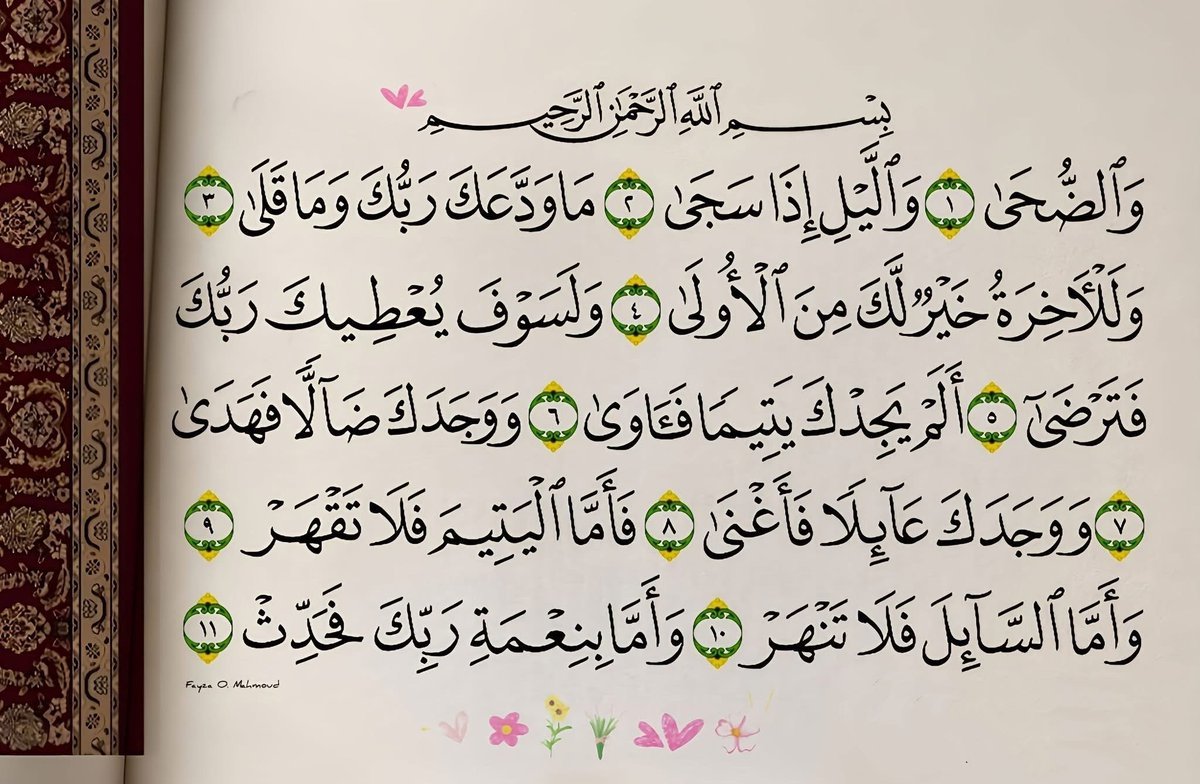 بِسْمِ ٱللَّهِ ٱلرَّحْمَٰنِ ٱلرَّحِيمِ
وَٱلضُّحَىٰ ١ وَٱلَّيْلِ إِذَا سَجَىٰ ٢ مَا وَدَّعَكَ رَبُّكَ وَمَا قَلَىٰ ٣
وَلَلْـَٔاخِرَةُ خَيْرٌ لَّكَ مِنَ ٱلْأُولَىٰ ٤ وَلَسَوْفَ يُعْطِيكَ رَبُّكَ
فَتَرْضَىٰٓ ٥ أَلَمْ يَجِدْكَ يَتِيمًا فَـَٔاوَىٰ ٦ وَوَجَدَكَ ضَآلًّا فَهَدَىٰ
٧ وَوَجَدَكَ عَآئِلًا فَأَغْنَىٰ ٨ فَأَمَّا ٱلْيَتِيمَ فَلَا تَقْهَرْ ٩
وَأَمَّا ٱلسَّآئِلَ فَلَا تَنْهَرْ ١٠ وَأَمَّا بِنِعْمَةِ رَبِّكَ فَحَدِّثْ ١١
Fayza O. Mahmoud